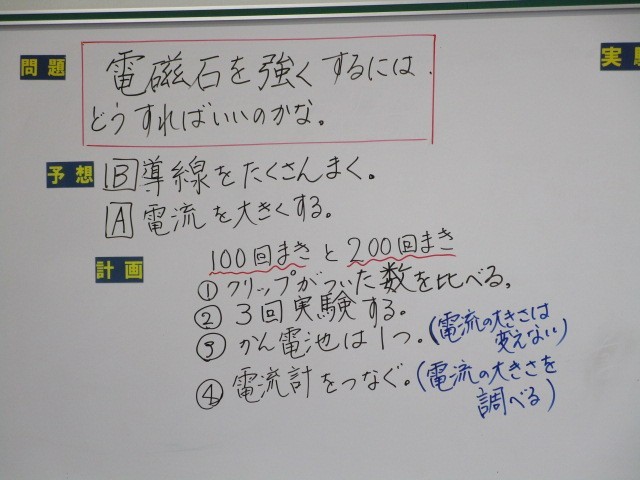 問題
電磁石を強くするには
どうすればいいのかな。
予想
B 導線をたくさんまく。
A 電流を大きくする。
計画
100回まきと200回まき
① クリップがついた数を比べる。
② 3回実験する。
③ かん電池は1つ。(電流の大きさは
変えない)
④ 電流計をつなぐ。(電流の大きさを
調べる)
実